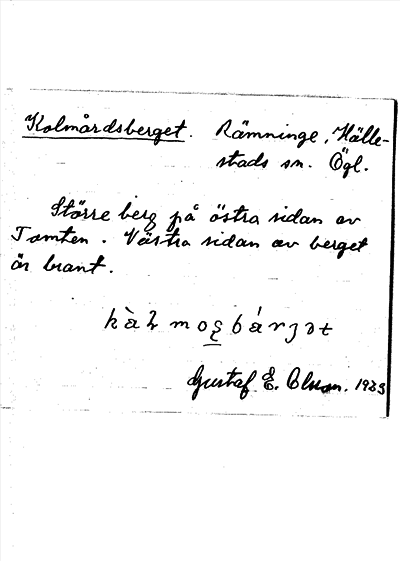 Kolmårdsberget. Rämninge, Hälle-
stads sn. Ögl.
Större berg på östra sidan av
Tomten. Västra sidan av berget
är brant.
Gustaf E. Olsson. 1933